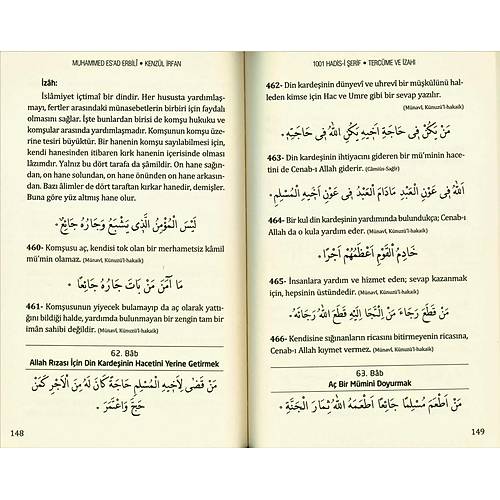 MUHAMMED ES'AD ERBİLÎ • KENZÜL İRFAN
İzâh:
İslâmiyet içtimaî bir dindir. Her hususta yardımlaş-
mayı, fertler arasındaki münasebetlerin birbiri için faydalı
olmasını sağlar. İşte bunlardan birisi de komşu hukuku ve
komşular arasında yardımlaşmadır. Komşunun komşu üze-
rine tesiri büyüktür. Bir hanenin komşu sayılabilmesi için,
kendi hanesinden itibaren kırk hanenin içerisinde olması
lâzımdır. Yalnız bu dört tarafa da şâmildir. On hane sağın-
dan, on hane solundan, on hane önünden on hane arkasın-
dan. Bazı âlimler de dört taraftan kırkar hanedir, demişler.
Buna göre yüz altmış hane olur.
لَيْسَ الْمُؤْمِنُ الَّذِي يَشْبَعُ وَجَارُهُ جَائِعٌ.
460- Komşusu aç, kendisi tok olan bir merhametsiz kâmil
mü'min olamaz. (Münavî, Künuzü'l-hakaik)
مَا آمَنَ مَنْ بَاتَ جَارُهُ جَائِعًا.
461- Komşusunun yiyecek bulamayıp da aç olarak yattığı-
nı bildiği halde, yardımda bulunmayan bir zengin tam bir
iman sahibi değildir. (Münavî, Künuzü'l-hakaik)
62. Bâb
Allah Rızâsı İçin Din Kardeşinin Hacetini Yerine Getirmek
مَنْ قَضٰى لِاَخِيهِ الْمُسْلِمِ حَاجَةً كَانَ لَهُ مِنَ الْاَجْرِ كَمَنْ
حَجَّ وَاعْتَمَرَ.
148
1001 HADİS-İ ŞERİF • TERCÜME VE İZAHI
462- Din kardeşinin dünyevî ve uhrevî bir müşkülünü hal-
leden kimse için Hac ve Umre gibi bir sevap yazılır.
(Münavî, Künuzü'l-hakaik)
مَنْ يَكُنْ فِي حَاجَةِ اَخِيهِ يَكُنِ اللهُ فِي حَاجَتِهِ.
463- Din kardeşinin ihtiyacını gideren bir mü'minin hace-
tini de Cenab-ı Allah giderir. (Câmiüs-Sağir)
اَللهُ فِي عَوْنِ الْعَبْدِ مَادَامَ الْعَبْدُ فِي عَوْنِ اَخِيهِ الْمُسْلِمِ.
464- Bir kul din kardeşinin yardımında bulundukça; Cenab-ı
Allah da o kula yardım eder. (Münavî, Künuzü'l-hakaik)
خَادِمُ الْقَوْمِ اَعْظَمُهُمْ اَجْرًا.
465- İnsanlara yardım ve hizmet eden; sevap kazanmak
için, hepsinin üstündedir. (Münavî, Künuzü'l-hakaik)
مَنْ قَطَعَ رَجَاءَ مَنِ الْتَجَا اِلَيْهِ قَطَعَ اللهُ رَجَاءَهُ.
466- Kendisine sığınanların ricasını bitirmeyenin ricasına,
Cenab-ı Allah kıymet vermez. (Münavî, Künuzü'l-hakaik)
63. Bâb
Aç Bir Mümini Doyurmak
مَنْ اَطْعَمَ مُسْلِمًا جَائِعًا اَطْعَمَهُ اللهُ ثِمَارَ الْجَنَّةِ.
149